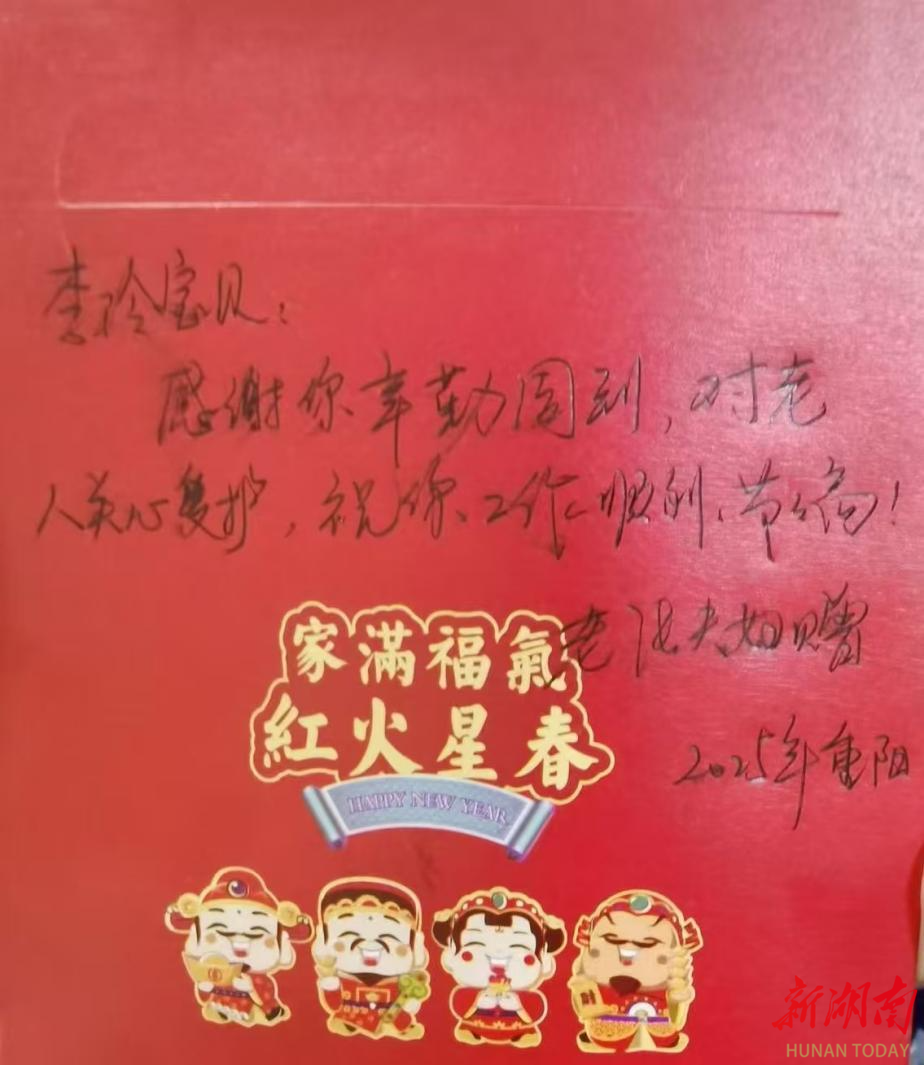 李玲宝贝：
感谢你辛勤周到，对老
人关心爱护，祝你工作顺利、节日愉快！
老张夫妇赠
2025年重阳
家滿福氣
紅火星春
HAPPY NEW YEAR
新湖南
HUNAN TODAY